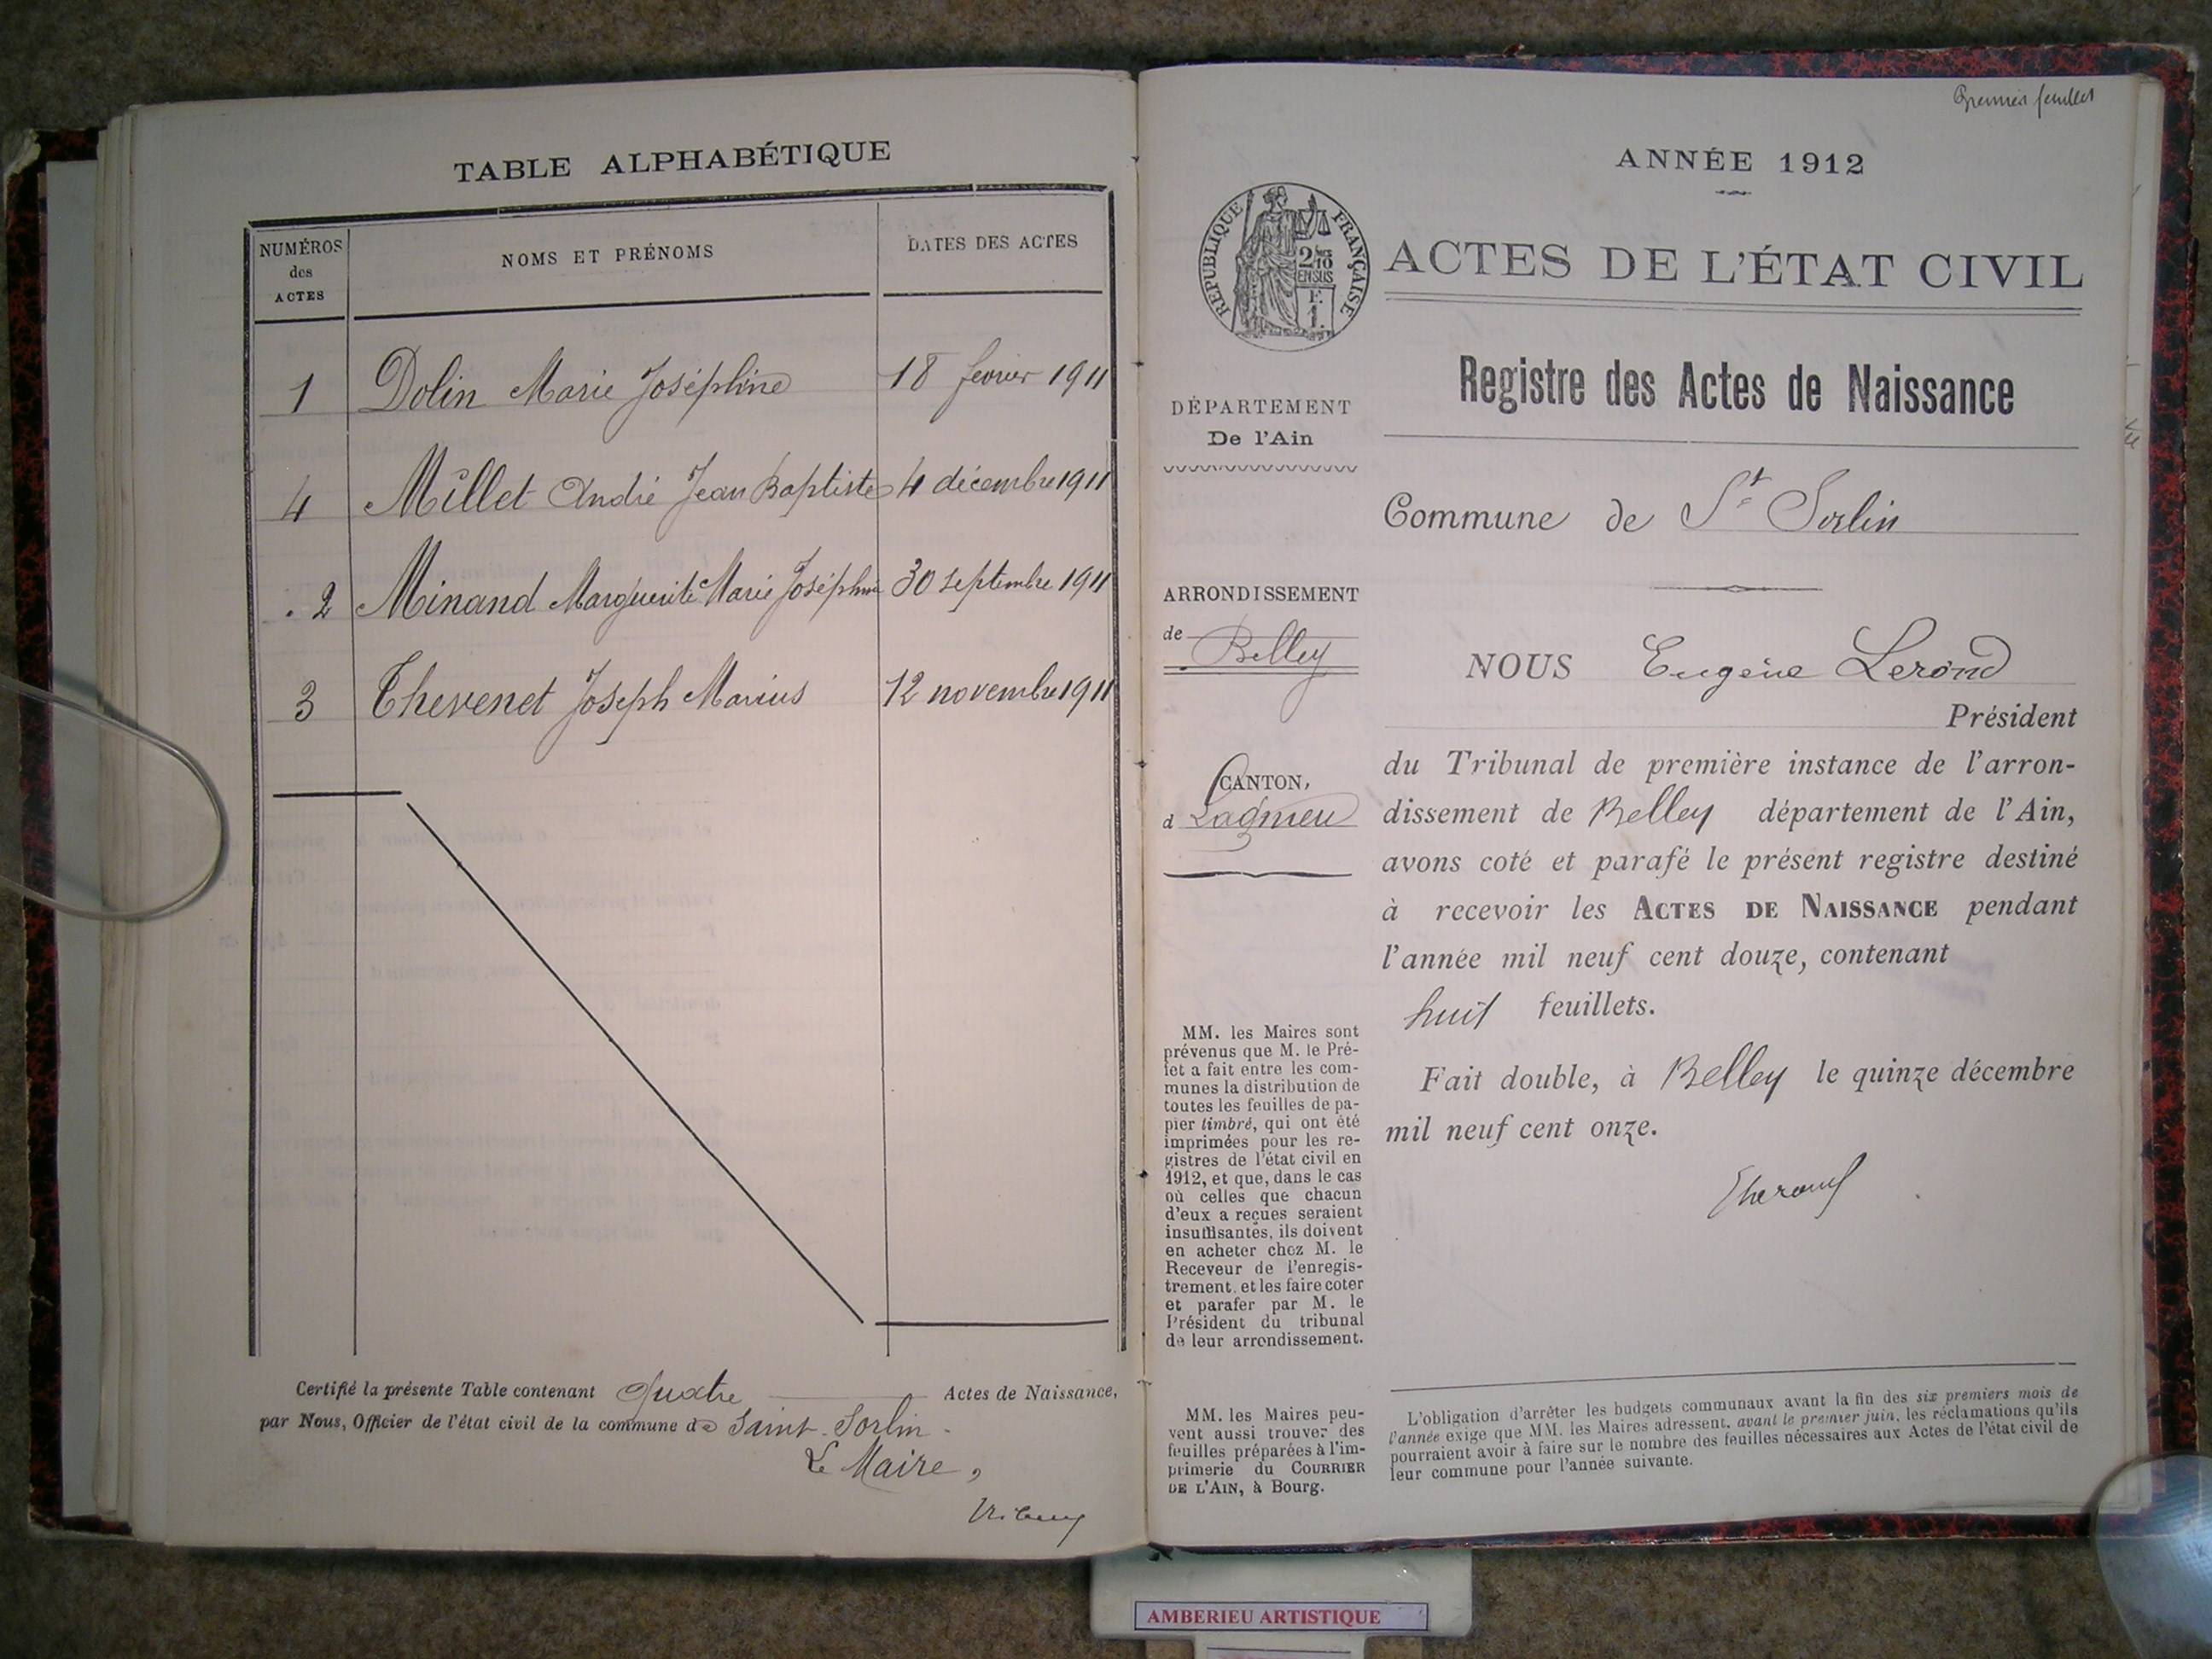 TABLE ALPHABÉTIQUE
NUMÉROS des ACTES
NOMS ET PRÉNOMS
DATES DES ACTES
1 Dolin Marie Joséphine 18 fevrier 1911
4 Millet André Jean Baptiste 4 décembre 1911
2 Minand Marguerite Marie Joséphine 30 septembre 1911
3 Thevenet Joseph Marius 12 novembre 1911
Certifié la présente Table contenant Quatre Actes de Naissance,
par Nous, Officier de l'état civil de la commune de Saint-Sorlin
Le Maire,
Premier feuillet
ANNÉE 1912
RÉPUBLIQUE FRANÇAISE
ACTES DE L'ÉTAT CIVIL
Registre des Actes de Naissance
DÉPARTEMENT
De l'Ain
Commune de St Sorlin
ARRONDISSEMENT
de Belley
CANTON,
d Lagnieu
NOUS Eugène Lerond
Président
du Tribunal de première instance de l'arron-
dissement de Belley département de l'Ain,
avons coté et parafé le présent registre destiné
à recevoir les ACTES DE NAISSANCE pendant
l'année mil neuf cent douze, contenant
huit feuillets.
Fait double, à Belley le quinze décembre
mil neuf cent onze.
MM. les Maires sont
prévenus que M. le Pré-
fet a fait entre les com-
munes la distribution de
toutes les feuilles de pa-
pier timbré, qui ont été
imprimées pour les re-
gistres de l'état civil en
1912, et que, dans le cas
où celles que chacun
d'eux a reçues seraient
insuffisantes, ils doivent
en acheter chez M. le
Receveur de l'enregis-
trement, et les faire coter
et parafer par M. le
Président du tribunal
de leur arrondissement.
MM. les Maires peu-
vent aussi trouver des
feuilles préparées à l'im-
primerie du COURRIER
DE L'AIN, à Bourg.
L'obligation d'arrêter les budgets communaux avant la fin des six premiers mois de
l'année exige que MM. les Maires adressent, avant le premier juin, les réclamations qu'ils
pourraient avoir à faire sur le nombre des feuilles nécessaires aux Actes de l'état civil de
leur commune pour l'année suivante.
AMBERIEU ARTISTIQUE